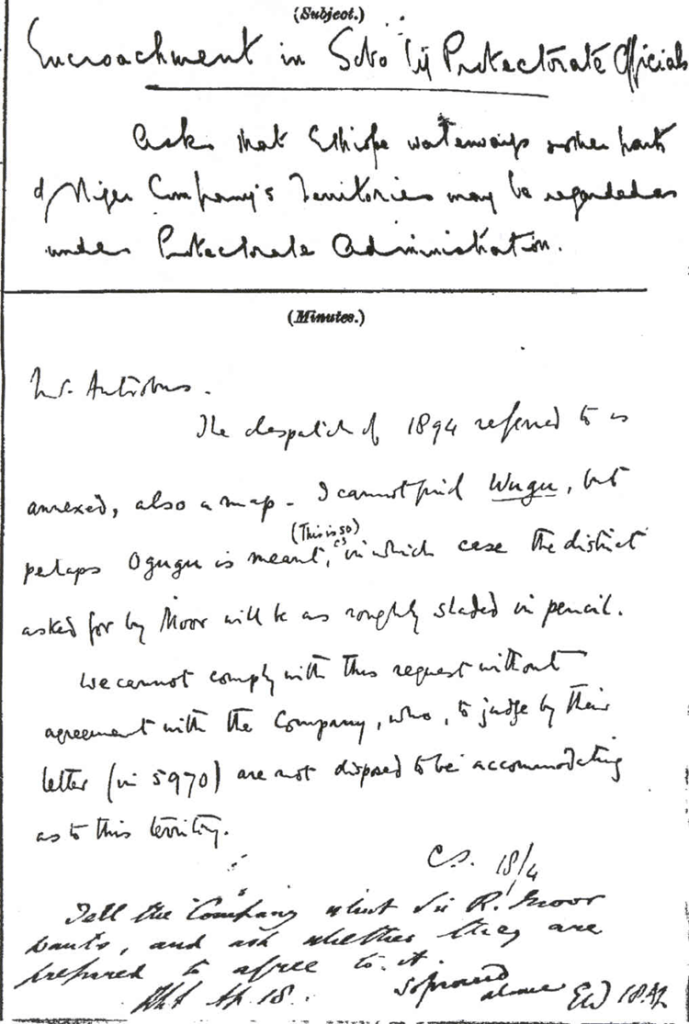 (Subject.)
Encroachment in Sobo by Protectorate Officials
Asks that Ethiope waterways & other parts
of Niger Company's Territories may be regarded as
under Protectorate Administration.
(Minutes.)
Mr. Antrobus.
The despatch of 1894 referred to is
annexed, also a map - I cannot find Wugu, but
(This is so)
perhaps Ogugu is meant, in which case the district
asked for by Moor will be as roughly shaded in pencil.
We cannot comply with this request without
agreement with the Company, who, to judge by their
letter (in 5970) are not disposed to be accommodating
as to this territory.
C.S. 18/4
Tell the Company what Sir R. Moor
wants, and ask whether they are
prepared to agree to it.
Ap. 18. So proceed